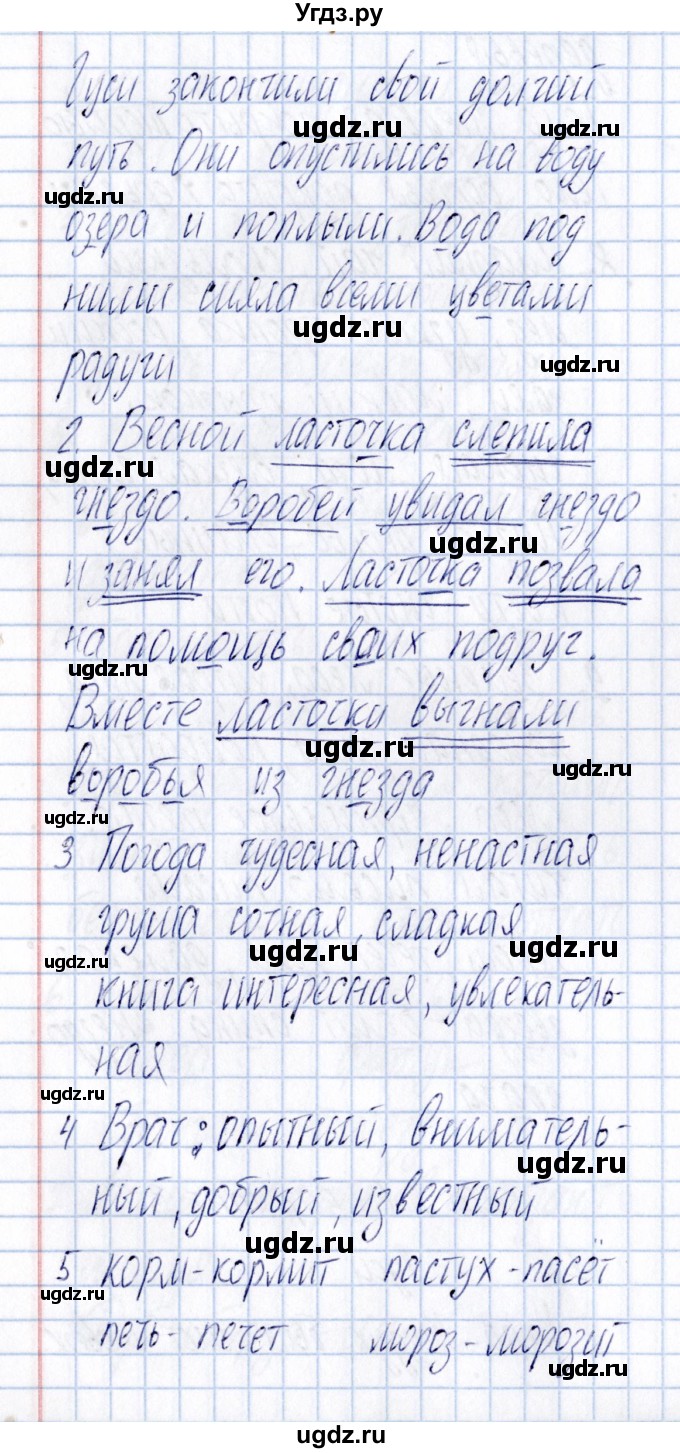 Угдз.ру
Гуси закончили свой долгий
ugdz.ru ugdz.ru
путь. Они опустились на воду
ugdz.ru
озера и поплыли. Вода под
ними сияла всеми цветами
ugdz.ru
радуги ugdz.ru
2. Весной ласточка слепила
ugdz.ru
гнездо. Воробей увидал гнездо
ugdz.ru
и занял его. Ласточка позвала
на помощь сваих подруг.
ugdz.ru
Вместе ласточки выгнали
ugdz.ru ugdz.ru
воробья из гнезда
ugdz.ru
3 Погода чудесная, ненастная
груша сочная, сладкая
ugdz.ru ugdz.ru ugdz.ru
книга интересная, увлекатель-
ная
ugdz.ru
4 Врач: опытный, вниматель-
ugdz.ru
ный, добрый, известный
ugdz.ru
5 корм-кормит пастух-пасёт
ugdz.ru
печь- печет мороз-морозит
ugdz.ru
ugdz.ru